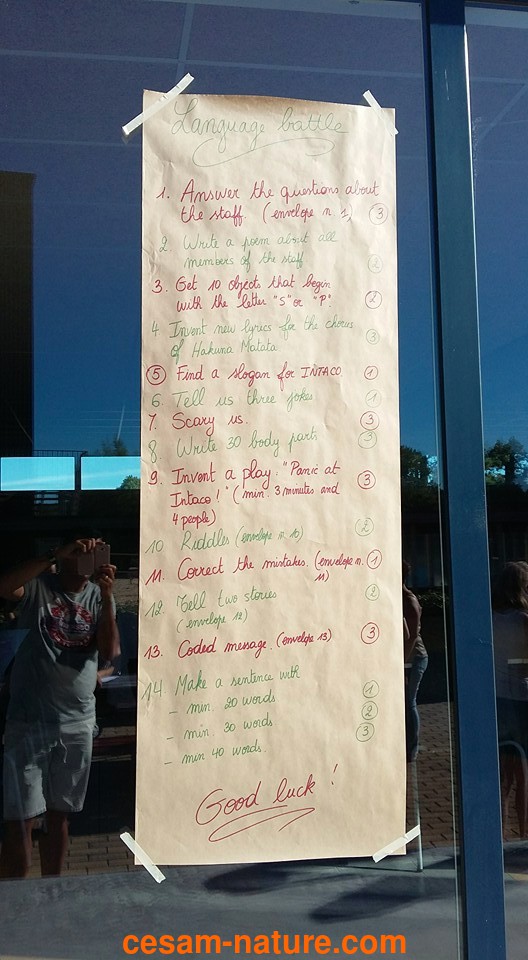 Language battle
1. Answer the questions about
the staff. (envelope n. 1) 3
2 Write a poem about all
members of the staff 2
3. Get 10 objects that begin
with the letter "S" or "P". 2
4 Invent new lyrics for the chorus
of Hakuna Matata. 3
5 Find a slogan for INTACO 1
6. Tell us three jokes 1
7. Scary us. 3
8. Write 30 body parts 3
9. Invent a play: "Panic at
Intaco!" (min. 3 minutes and
4 people) 3
10 Riddles (envelope n. 10) 2
11. Correct the mistakes. (envelope n.
11) 1
12. Tell two stories
(envelope 12) 2
13. Coded message. (envelope 13) 3
14 Make a sentence with
- min. 20 words 1
- min. 30 words 2
- min 40 words. 3
Good luck!
cesam-nature.com